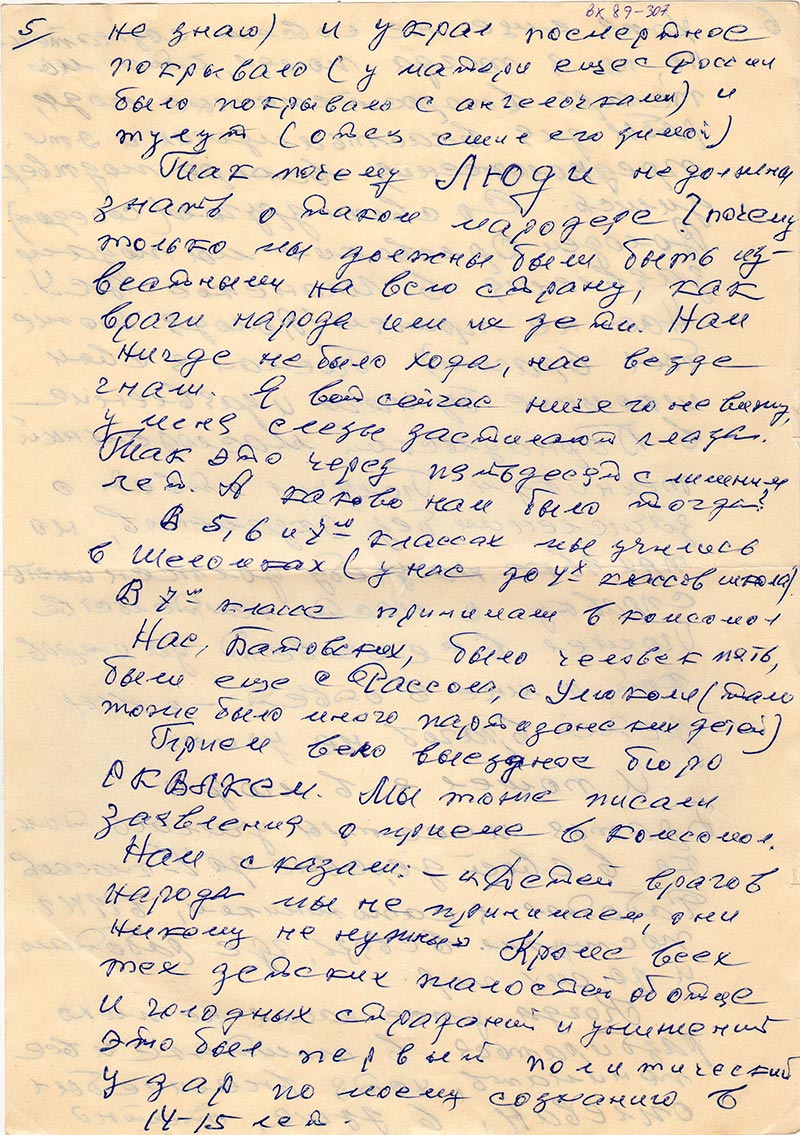 вх 89-307
5/ не знаю) и украл посмертное
покрывало (у матери еще с России
было покрывало с ангелочками) и
тулуп (отец сшил его зимой)
Так почему Люди не должны
знать о таком мародере? почему
только мы должны были быть из-
вестными на всю страну, как
враги народа или их дети. Нам
нигде не было хода, нас везде
гнали. Я вот сейчас ничего не вижу,
у меня слезы застилают глаза.
Так это через пятьдесят с лишним
лет. А каково нам было тогда?
В 5, 6 и 7ом классах мы учились
в Шеломках (у нас до 4х классов школа).
В 7ом классе принимали в комсомол
Нас, Батовских, было человек пять,
были еще с Рассол, с Улюкол (там
тоже было много партизанских детей)
Прием вело выездное бюро
РКВЛКСМ. Мы тоже писали
заявления о приеме в комсомол.
Нам сказали: – "Детей врагов
народа мы не принимаем, они
никому не нужны". Кроме всех
тех детских жалостей об отце
и голодных страданий и унижений
это был первый политический
удар по моему сознанию в
14-15 лет.